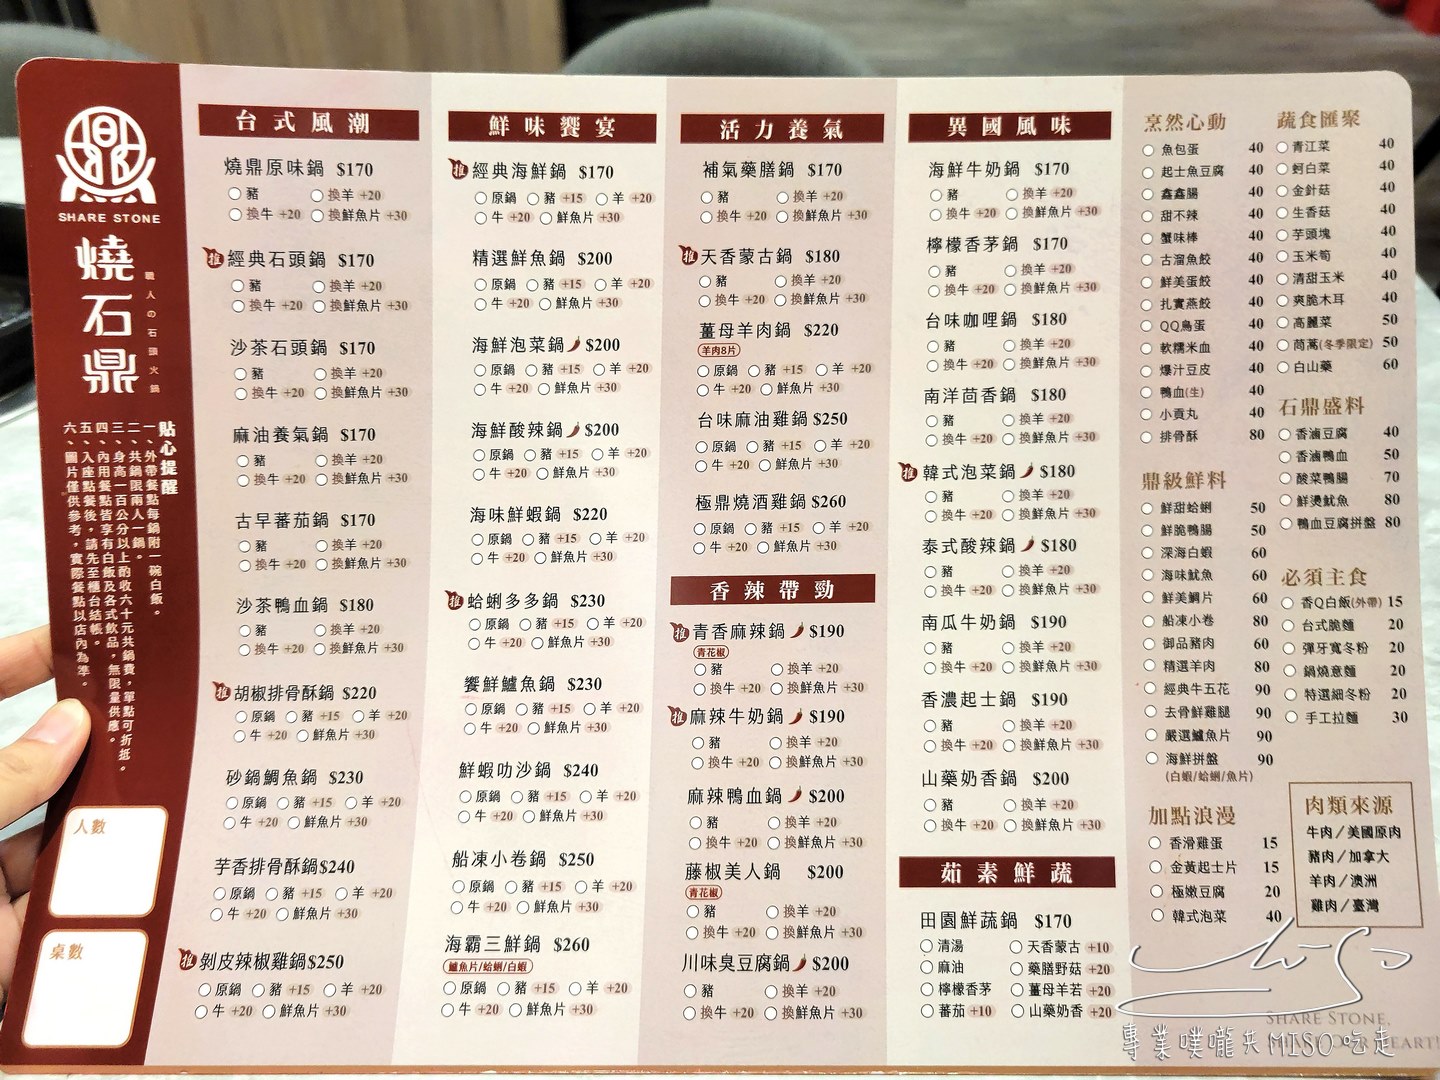 SHARE STONE
燒石鼎
職人の石頭火鍋
貼心提醒
一、外帶餐點每鍋附一碗白飯。
二、共鍋限兩人一鍋。
三、身高一百公分以上酌收六十元共鍋費，單點可折抵。
四、內用餐點皆享有白飯及各式飲品，無限量供應。
五、入座點餐後，請先至櫃台結帳。
六、圖片僅供參考，實際餐點以店內為準。
人數
桌數
台式風潮
燒鼎原味鍋 $170
豬 換羊 +20
換牛 +20 換鮮魚片 +30
推 經典石頭鍋 $170
豬 換羊 +20
換牛 +20 換鮮魚片 +30
沙茶石頭鍋 $170
豬 換羊 +20
換牛 +20 換鮮魚片 +30
麻油養氣鍋 $170
豬 換羊 +20
換牛 +20 換鮮魚片 +30
古早蕃茄鍋 $170
豬 換羊 +20
換牛 +20 換鮮魚片 +30
沙茶鴨血鍋 $180
豬 換羊 +20
換牛 +20 換鮮魚片 +30
推 胡椒排骨酥鍋 $220
原鍋 豬 +15 羊 +20
牛 +20 鮮魚片 +30
砂鍋鯛魚鍋 $230
原鍋 豬 +15 羊 +20
牛 +20 鮮魚片 +30
芋香排骨酥鍋 $240
原鍋 豬 +15 羊 +20
牛 +20 鮮魚片 +30
推 剝皮辣椒雞鍋 $250
原鍋 豬 +15 羊 +20
牛 +20 鮮魚片 +30
鮮味饗宴
推 經典海鮮鍋 $170
原鍋 豬 +15 羊 +20
牛 +20 鮮魚片 +30
精選鮮魚鍋 $200
原鍋 豬 +15 羊 +20
牛 +20 鮮魚片 +30
海鮮泡菜鍋 $200
原鍋 豬 +15 羊 +20
牛 +20 鮮魚片 +30
海鮮酸辣鍋 $200
原鍋 豬 +15 羊 +20
牛 +20 鮮魚片 +30
海味鮮蝦鍋 $220
原鍋 豬 +15 羊 +20
牛 +20 鮮魚片 +30
推 蛤蜊多多鍋 $230
原鍋 豬 +15 羊 +20
牛 +20 鮮魚片 +30
饗鮮鱸魚鍋 $230
原鍋 豬 +15 羊 +20
牛 +20 鮮魚片 +30
鮮蝦叻沙鍋 $240
原鍋 豬 +15 羊 +20
牛 +20 鮮魚片 +30
船凍小卷鍋 $250
原鍋 豬 +15 羊 +20
牛 +20 鮮魚片 +30
海霸三鮮鍋 $260
鱸魚片/蛤蜊/白蝦
原鍋 豬 +15 羊 +20
牛 +20 鮮魚片 +30
活力養氣
補氣藥膳鍋 $170
豬 換羊 +20
換牛 +20 換鮮魚片 +30
推 天香蒙古鍋 $180
豬 換羊 +20
換牛 +20 換鮮魚片 +30
薑母羊肉鍋 $220
羊肉8片
原鍋 豬 +15 羊 +20
牛 +20 鮮魚片 +30
台味麻油雞鍋 $250
原鍋 豬 +15 羊 +20
牛 +20 鮮魚片 +30
極鼎燒酒雞鍋 $260
原鍋 豬 +15 羊 +20
牛 +20 鮮魚片 +30
香辣帶勁
推 青香麻辣鍋 $190
青花椒
豬 換羊 +20
換牛 +20 換鮮魚片 +30
推 麻辣牛奶鍋 $190
豬 換羊 +20
換牛 +20 換鮮魚片 +30
麻辣鴨血鍋 $200
豬 換羊 +20
換牛 +20 換鮮魚片 +30
藤椒美人鍋 $200
青花椒
豬 換羊 +20
換牛 +20 換鮮魚片 +30
川味臭豆腐鍋 $200
豬 換羊 +20
換牛 +20 換鮮魚片 +30
異國風味
海鮮牛奶鍋 $170
豬 換羊 +20
換牛 +20 換鮮魚片 +30
檸檬香茅鍋 $170
豬 換羊 +20
換牛 +20 換鮮魚片 +30
台味咖哩鍋 $180
豬 換羊 +20
換牛 +20 換鮮魚片 +30
南洋茴香鍋 $180
豬 換羊 +20
換牛 +20 換鮮魚片 +30
推 韓式泡菜鍋 $180
豬 換羊 +20
換牛 +20 換鮮魚片 +30
泰式酸辣鍋 $180
豬 換羊 +20
換牛 +20 換鮮魚片 +30
南瓜牛奶鍋 $190
豬 換羊 +20
換牛 +20 換鮮魚片 +30
香濃起士鍋 $190
豬 換羊 +20
換牛 +20 換鮮魚片 +30
山藥奶香鍋 $200
豬 換羊 +20
換牛 +20 換鮮魚片 +30
茹素鮮蔬
田園鮮蔬鍋 $170
清湯 天香蒙古 +10
麻油 藥膳野菇 +20
檸檬香茅 薑母羊若 +20
蕃茄 +10 山藥奶香 +20
烹然心動
魚包蛋 40
起士魚豆腐 40
鑫鑫腸 40
甜不辣 40
蟹味棒 40
古溜魚餃 40
鮮美蛋餃 40
扎實燕餃 40
QQ鳥蛋 40
軟糯米血 40
爆汁豆皮 40
鴨血(生) 40
小貢丸 40
排骨酥 80
鼎級鮮料
鮮甜蛤蜊 50
鮮脆鴨腸 50
深海白蝦 60
海味魷魚 60
鮮美鯛片 60
船凍小卷 80
御品豬肉 60
精選羊肉 80
經典牛五花 90
去骨鮮雞腿 90
嚴選鱸魚片 90
海鮮拼盤 90
(白蝦/蛤蜊/魚片)
加點浪漫
香滑雞蛋 15
金黃起士片 15
極嫩豆腐 20
韓式泡菜 40
蔬食匯聚
青江菜 40
蚵白菜 40
金針菇 40
生香菇 40
芋頭塊 40
玉米筍 40
清甜玉米 40
爽脆木耳 40
高麗菜 50
茼蒿(冬季限定) 50
白山藥 60
石鼎盛料
香滷豆腐 40
香滷鴨血 50
酸菜鴨腸 70
鮮燙魷魚 80
鴨血豆腐拼盤 80
必須主食
香Q白飯(外帶) 15
台式脆麵 20
彈牙寬冬粉 20
鍋燒意麵 20
特選細冬粉 20
手工拉麵 30
肉類來源
牛肉／美國原肉
豬肉／加拿大
羊肉／澳洲
雞肉／臺灣
SHARE STONE,
專業噗嚨共MISO吃走